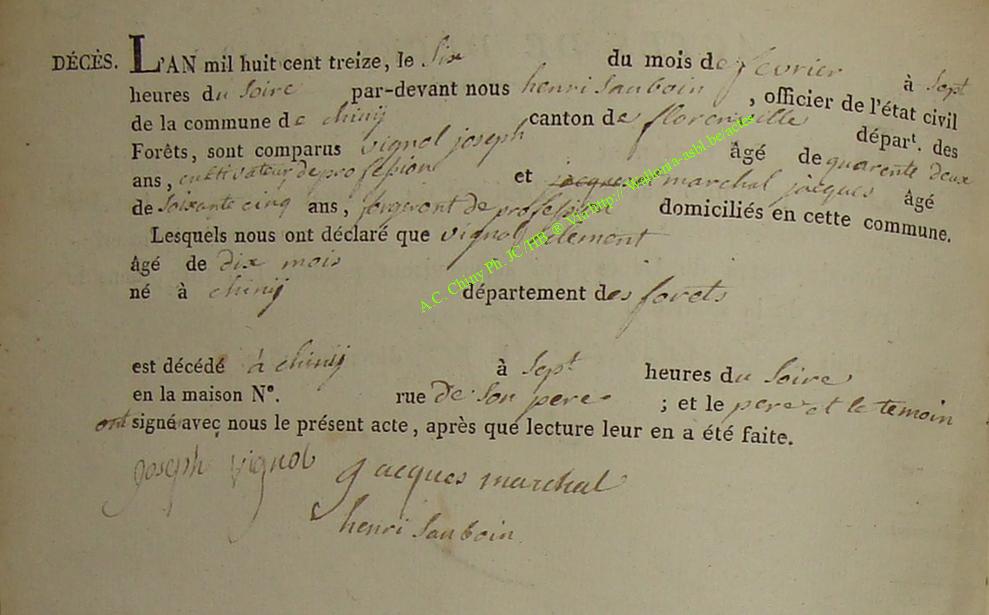 DÉCÈS. L'AN mil huit cent treize, le Six du mois de fevrier à Sept
heures du Soire par-devant nous henri Sauboin, officier de l'état civil
de la commune de chinij canton de florenville départ. des
Forêts, sont comparus vignol joseph âgé de quarente deux
ans, cultivateur de profession et marchal jacques âgé
de Soixante cinq ans, forgeront de profession domiciliés en cette commune.
Lesquels nous ont déclaré que vignol clement
âgé de dix mois
né à chinij département des forets
est décédé à chinij à Sept heures du Soire
en la maison N°. rue de Son pere ; et le pere et le temoin
ont signé avec nous le présent acte, après que lecture leur en a été faite.
joseph vignol jacques marchal
henri Sauboin
A.C. Chiny Ph. JC/HB ® Via http://Wallonia-asbl.be/actes